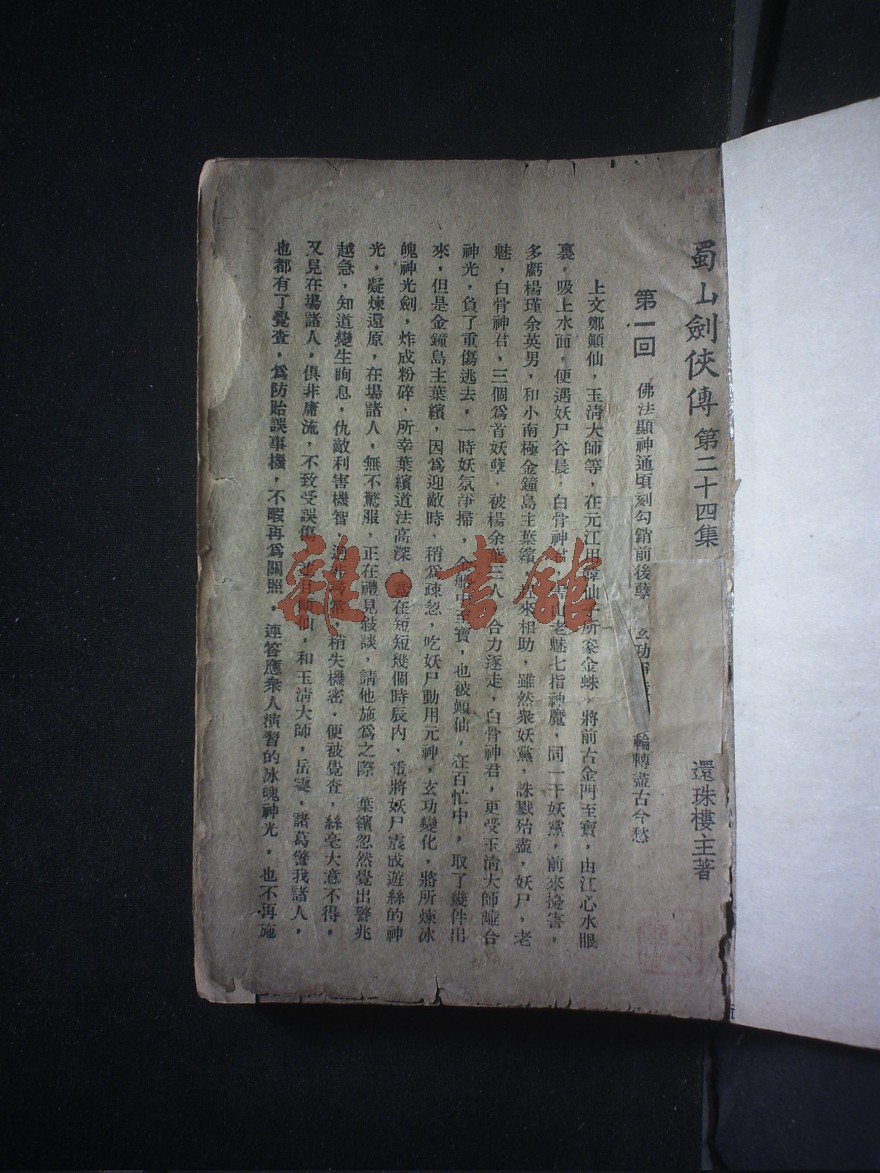 蜀山劍俠傳 第二十四集
還珠樓主著
第一回 佛法顯神通頃刻勾銷前後孽 玄功 輪轉盡古今愁
上文鄭顛仙，玉清大師等，在元江用 金蛛，將前古金門至寶，由江心水眼
裏，吸上水面，便遇妖尸谷晨，白骨神君， 山老魅七指神魔，同一干妖黨，前來擾害，
多虧楊瑾余英男，和小南極金鐘島主葉繽， 來相助，雖然衆妖黨，誅戮殆盡，妖尸，老
魅，白骨神君，三個爲首妖孽，被楊余葉三人，合力逐走，白骨神君，更受玉清大師離合
神光，負了重傷逃去，一時妖氛淨掃， 中至寶，也被顛仙，在百忙中，取了幾件出
來，但是金鐘島主葉繽，因爲迎敵時，稍爲疎忽，吃妖尸動用元神，玄功變化，將所煉冰
魄神光劍，炸成粉碎，所幸葉繽道法高深， 在短短幾個時辰內，重將妖尸震成遊絲的神
光，凝煉還原，在場諸人，無不驚服，正在禮見敍談，請他施爲之際，葉繽忽然覺出警兆
越急，知道變生眴息，仇敵利害機智，迥非尋常，稍失機密，便被覺查，絲毫大意不得，
又見在場諸人，俱非庸流，不致受誤傷， 顛仙，和玉清大師，岳雯，諸葛警我諸人，
也都有了覺查，爲防貽誤事機，不暇再爲關照，連答應衆人演習的冰魄神光，也不再施
雜·書館